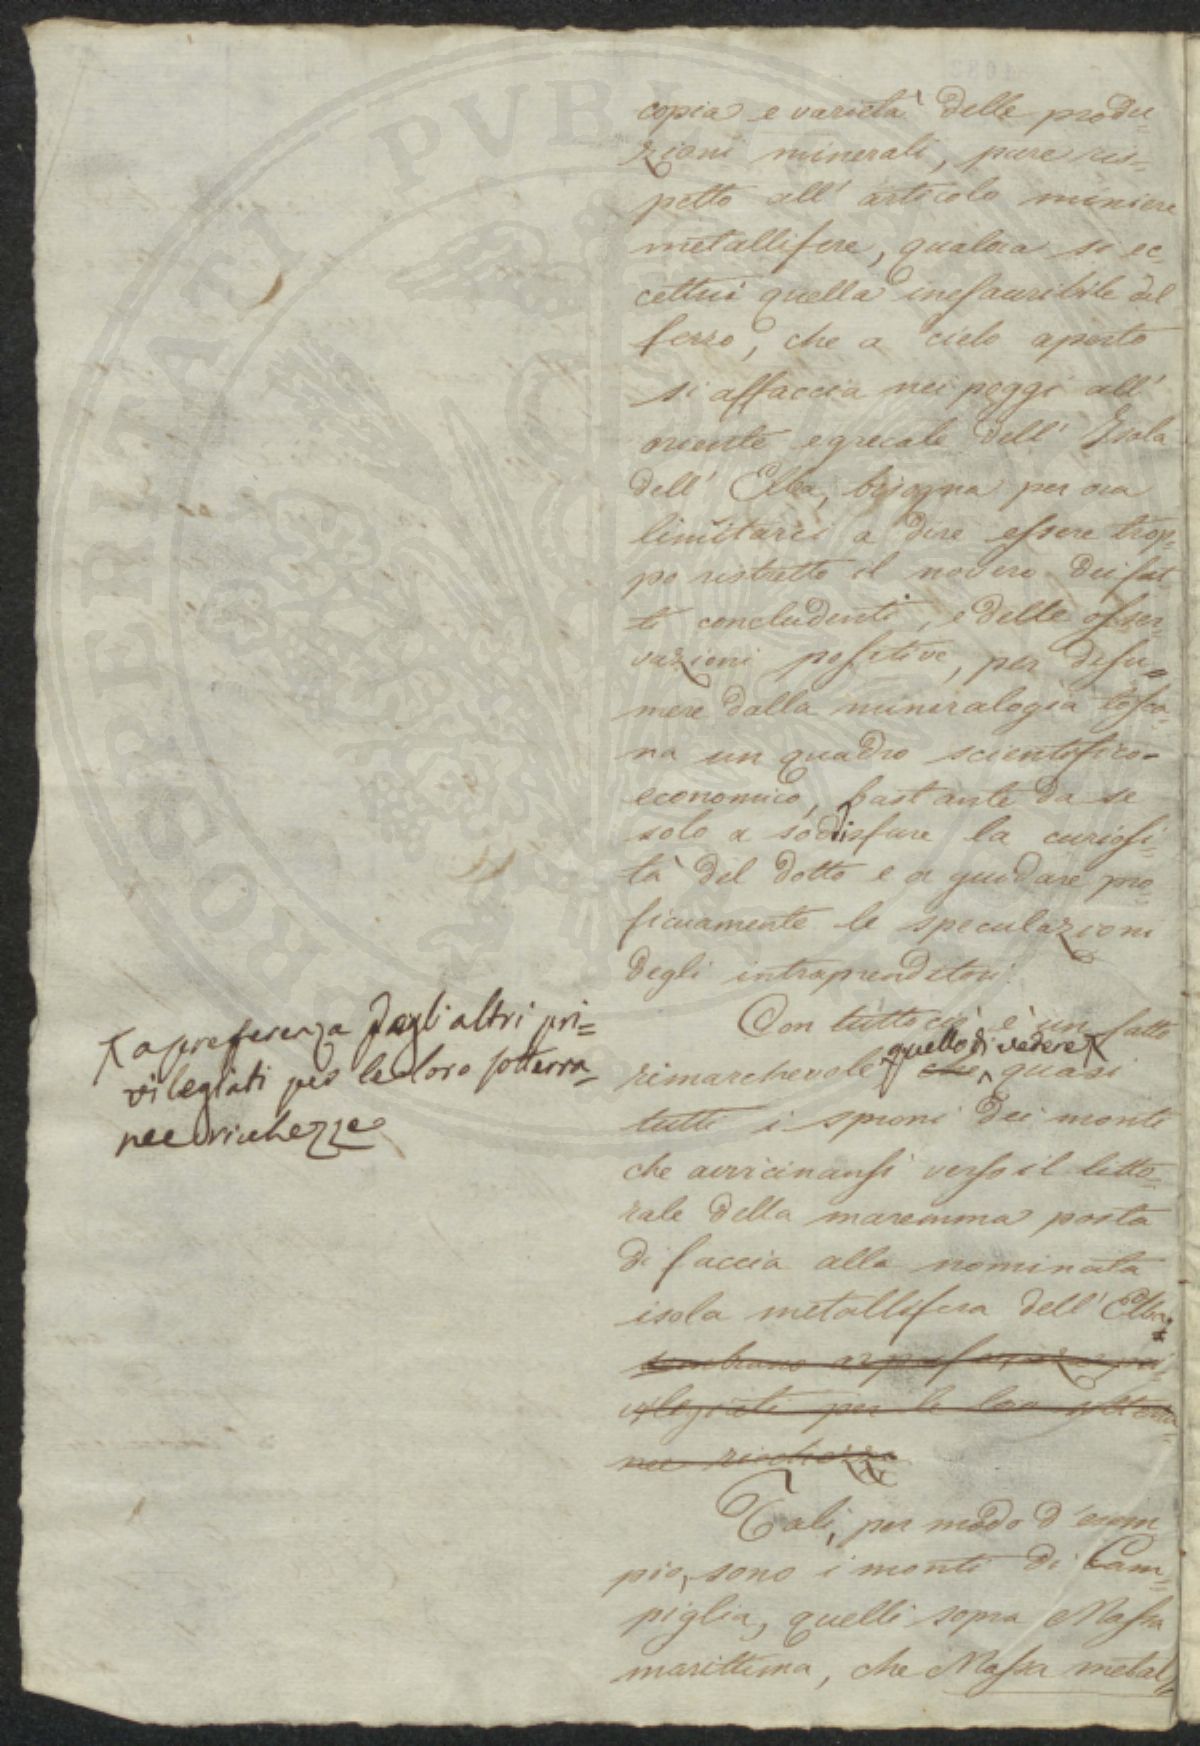 copia e varietà delle produ=
zioni minerali, pure ris=
petto all' articolo miniere
metallifere, qualora si ec=
cettui quella inesauribile del
ferro, che a cielo aperto
si affaccia nei poggi all'
oriente e grecale dell' Isola
dell' Elba, bisogna per ora
limitarci a dire essere trop=
po ristretto il novero dei fat=
ti concludenti, e delle osser=
vazioni positive, per desu=
mere dalla mineralogia tosca=
na un quadro scientifico-
economico, bastante da se
solo a soddisfare la curiosi=
tà del dotto e a guidare pro=
ficuamente le speculazioni
degli intraprenditori.
Con tutto ciò è un fatto
rimarchevole quello di vedere X che quasi
tutti i sproni dei monti
che avvicinansi verso il litto=
rale della maremma posta
di faccia alla nominata
isola metallifera dell' Elba
sembrano a preferenza pri=
vilegiati per le loro sotterra=
nee ricchezze
X a preferenza dagli altri pri=
vilegiati per le loro sotterra=
nee ricchezze
Tali, per modo d'esem
pio, sono i monti di Cam=
piglia, quelli sopra Massa
marittima, che Massa metal=
PROSPERITATI PVBL